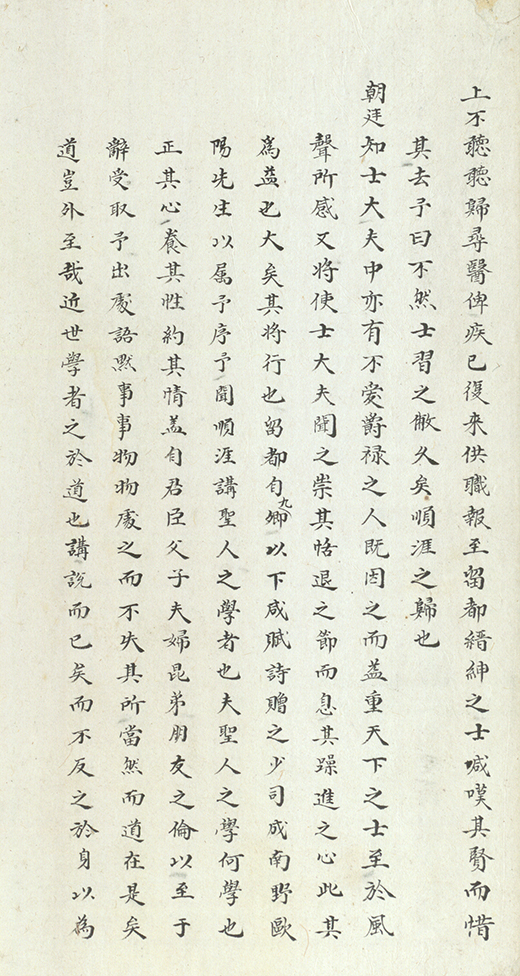 上不聽聽歸尋醫俾疾已復来供職報至留都縉紳之士咸嘆其賢而惜
其去予曰不然士習之敝久矣順涯之歸也
朝廷知士大夫中亦有不愛爵禄之人既因之而益重天下之士至於風
聲所感又将使士大夫聞之崇其恬退之節而息其躁進之心此其
為益也大矣其将行也留都自九卿以下咸賦詩贈之少司成南野歐
陽先生以属予序予聞順涯講聖人之學者也夫聖人之學何學也
正其心養其性約其情盖自君臣父子夫婦昆弟朋友之倫以至于
辭受取予出處語黙事事物物處之而不失其所當然而道在是矣
道豈外至哉近世學者之於道也講説而已矣而不反之於身以為